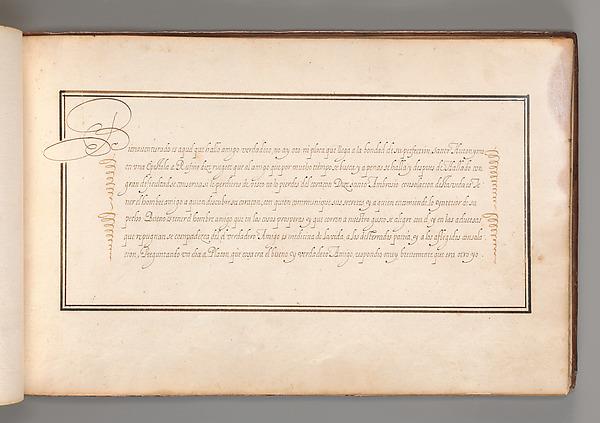 Bienaventurado es aquel que hallo amigo verdadero, no ay oro ni plata que llega a la bondad de su perfection. Santo Hieronymo
en una Epistola a Rufino dize ruegote que al amigo que por mucho tiempo se busca y apenas se halla, y despues de Hallado con
gran dificultad se conserva, si le perdieres de vista no lo pierdas del corazon Dize santo Ambrosio consolacion desta vida es Te-
ner el hombre amigo a quien descubra su corazon, con quien communique sus secretos, y a quien encomiende lo ynterior de su
pecho Bueno es tener el hombre amigo que en las cosas prosperas y que corren a nuestro gusto se alegre con el, y en las adversas
que repugnan se compadezca del el verdadero Amigo es medicina de la vida, a los desterrados patria, y a los afligidos consola
cion, Preguntando un dia a Platon, que cosa era el bueno y verdadero Amigo, respondio muy brevemente que era otro yo.